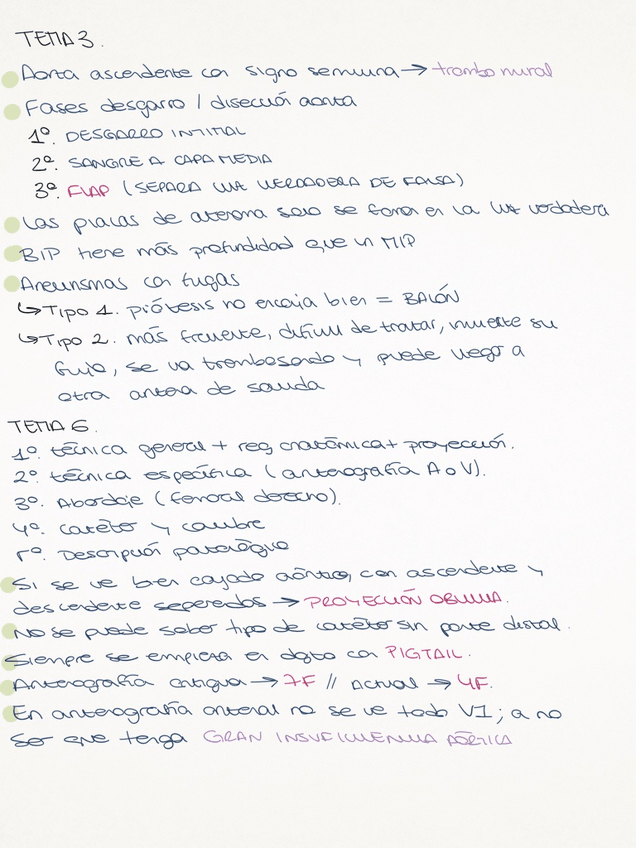 TEMA 3.
Aorta ascendente con signo semiluna → trombo mural
Fases desgarro / disección aorta
1º. DESGARRO INTIMAL
2º. SANGRE A CAPA MEDIA
3º. FLAP (SEPARA LUZ VERDADERA DE FALSA)
Las placas de ateroma solo se forman en la luz verdadera
BIP tiene más profundidad que un MIP
Aneurismas con fugas
↳ Tipo 1. prótesis no encaja bien = BALÓN
↳ Tipo 2. más frecuente, difícil de tratar, invierte su
flujo, se va trombosando y puede llegar a
otra arteria de salida
TEMA 6.
1º. técnica general + reg anatómica + proyección.
2º. técnica específica (arteriografía A o V).
3º. Abordaje (femoral derecho).
4º. catéter y calibre
5º. Descripción patológica
Si se ve bien cayado aórtico, con ascendente y
descendente separadas → PROYECCIÓN OBLICUA.
No se puede saber tipo de catéter sin parte distal.
Siempre se empieza en dgto con PIGTAIL.
Arteriografía antigua → 7F // Actual → 4F.
En arteriografía arterial no se ve todo VI; a no
ser que tenga GRAN INSUFICIENCIA AÓRTICA